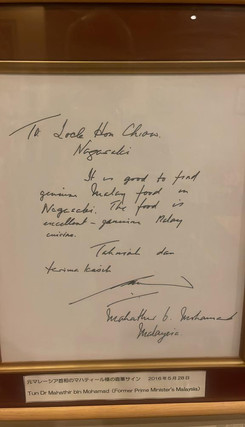 To Loch Hon Chiaw
Nagasaki
It is good to find
genuine Malay food in
Nagasaki. The food is
excellent - genuine Malay
cuisine.
Tahniah dan
terima kasih
Mahathir b. Mohamad
Malaysia
元マレーシア首相のマハティール様の直筆サイン 2016年5月28日
Tun Dr Mahathir bin Mohamad (Former Prime Minister's Malaysia)